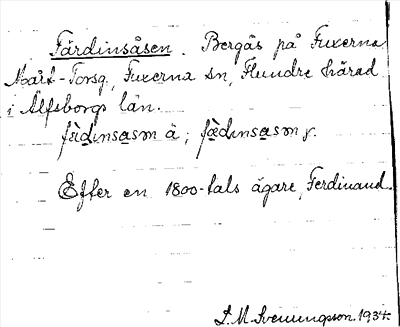 Färdinsåsen. Bergås på Fuxerna
Mårt-Torsg, Fuxerna sn, Flundre härad
i Älfsborgs län.
fä̀dinsasən ä; fæ̀dinsasən y.
Efter en 1800-tals ägare, Ferdinand.
S. M. Svenungson. 1934.